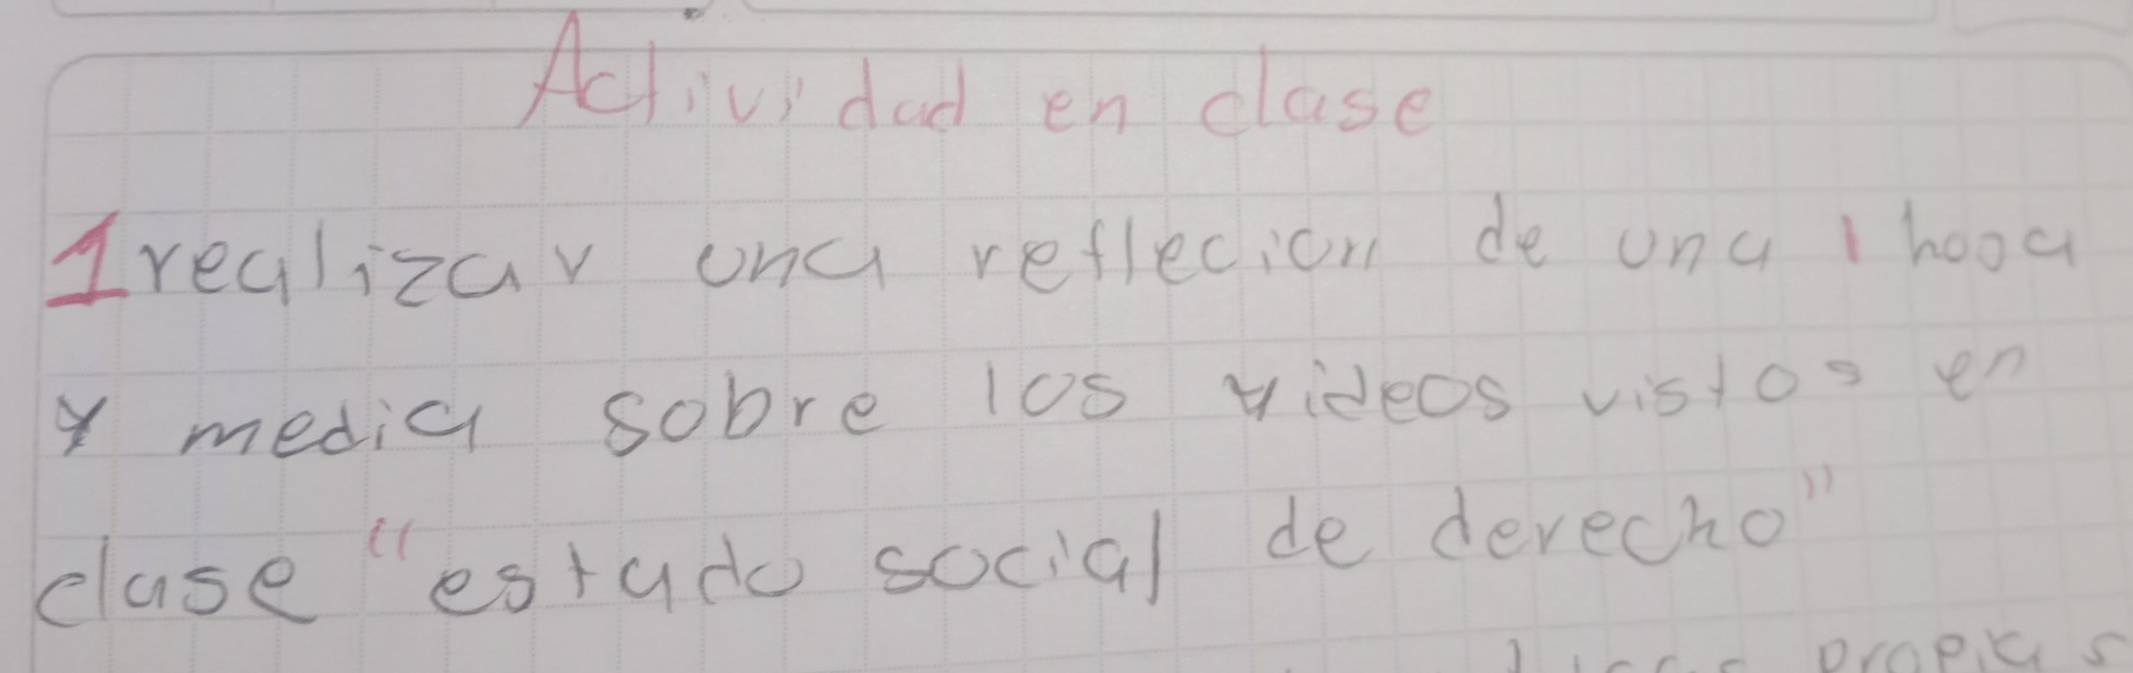 Actividad en clase
1 realizar una reflecion de una 1 hooa
y media sobre los videos vistos en
clase "estado social de derecho"
propias